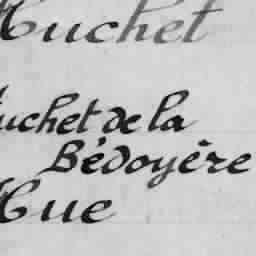 Huchet
Huchet de la
Bédoyère
Hue